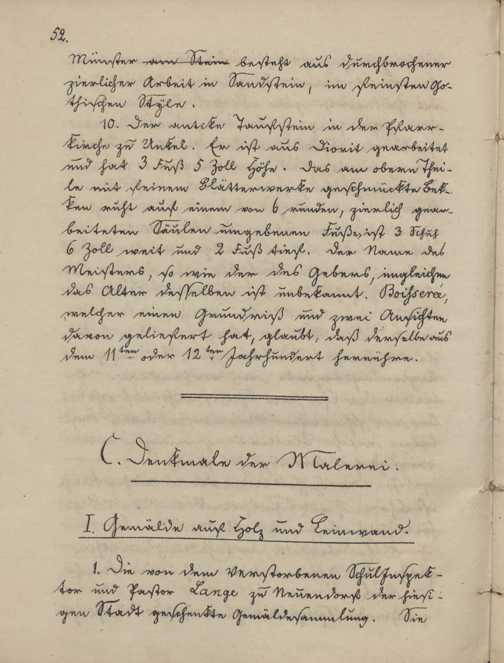 52.
Münster am Stein besteht aus durchbrochener
zierlicher Arbeit in Sandstein, im feinsten Go-
thischen Style.
10. Der antike Taufstein in der Pfarr-
kirche zu Unkel. Er ist aus Diorit gearbeitet
und hat 3 Fuß 5 Zoll Höhe. Das am obern Thei-
le mit feinem Blätterwerke geschmückte Bek-
ken ruht auf einem von 6 runden, zierlich gear-
beiteten Säulen umgebenen Fuße, ist 3 Schuh
6 Zoll weit und 2 Fuß tief. Der Name des
Meisters, so wie der des Gebers, imgleichen
das Alter desselben ist unbekannt. Boisseré,
welcher einen Grundriß und zwei Ansichten
davon geliefert hat, glaubt, daß derselbe aus
dem 11ten oder 12ten Jahrhundert herrühre.
C. Denkmale der Malerei.
I. Gemälde auf Holz und Leinwand.
1. Die von dem verstorbenen Schulinspek-
tor und Pastor Lange zu Neuendorf der hiesi-
gen Stadt geschenkte Gemäldesammlung. Sie